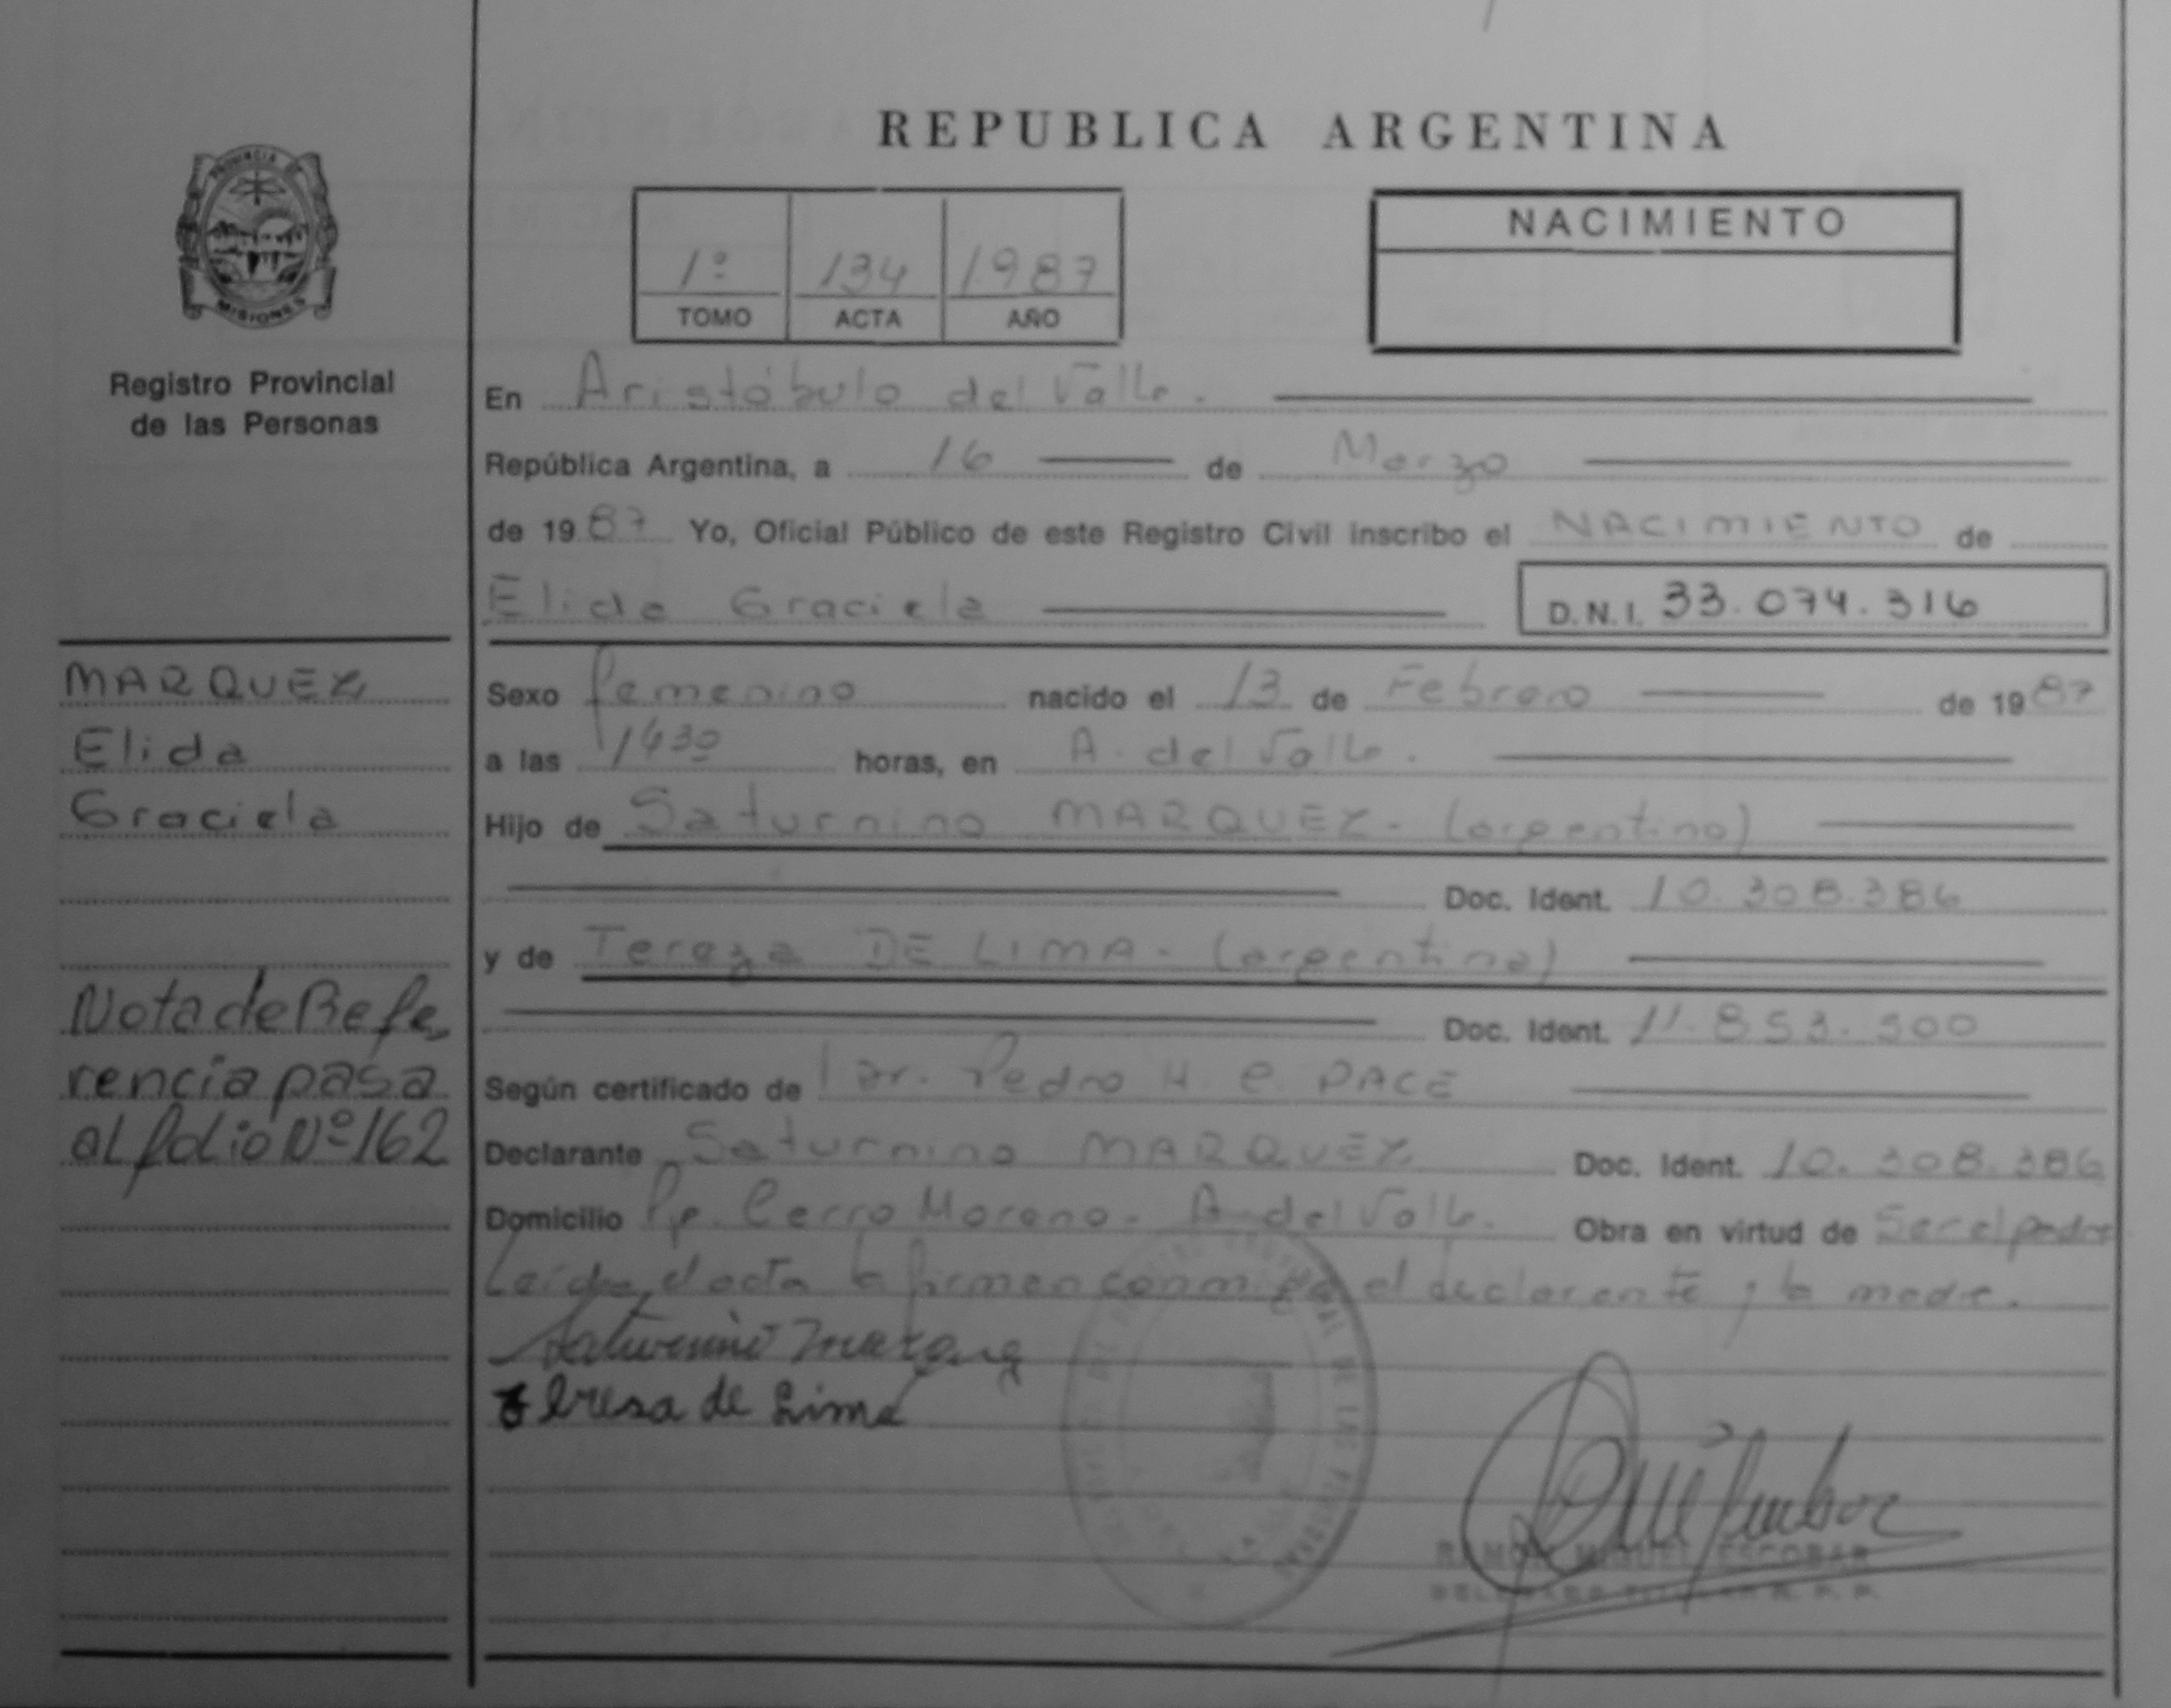 REPUBLICA ARGENTINA
PROVINCIA DE
MISIONES
Registro Provincial
de las Personas
1º 134 1987
TOMO ACTA AÑO
NACIMIENTO
En Aristóbulo del Valle.
República Argentina, a 16 de Marzo
de 1987 Yo, Oficial Público de este Registro Civil inscribo el NACIMIENTO de
Elida Graciela
D.N.I. 33.074.316
MARQUEZ
Elida
Graciela
Nota de Refe
rencia pasa
al folio Nº 162
Sexo femenino nacido el 13 de Febrero de 1987
a las 1430 horas, en A. del Valle.
Hijo de Saturnino MARQUEZ - (argentino)
Doc. Ident. 10.308.386
y de Tereza DE LIMA - (argentina)
Doc. Ident. 11.853.500
Según certificado de Dr. Pedro H. C. PACE
Declarante Saturnino MARQUEZ Doc. Ident. 10.308.386
Domicilio Pje. Cerro Moreno - A. del Valle. Obra en virtud de Ser el padre
Leída el acta la firman conmigo el declarante y la madre.
Saturnino Marquez
Teresa de Lima
RAMON MIGUEL ESCOBAR
DELEGADO TITULAR R. P. P.